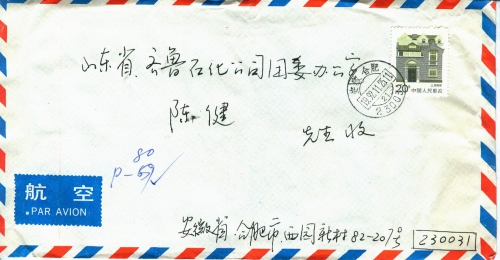 山东省、齐鲁石化公司团委办公室
陈健
先生 收
20分 中国人民邮政
230031
80
航空
PAR AVION
安徽省、合肥市、西园新村82-207号
230031